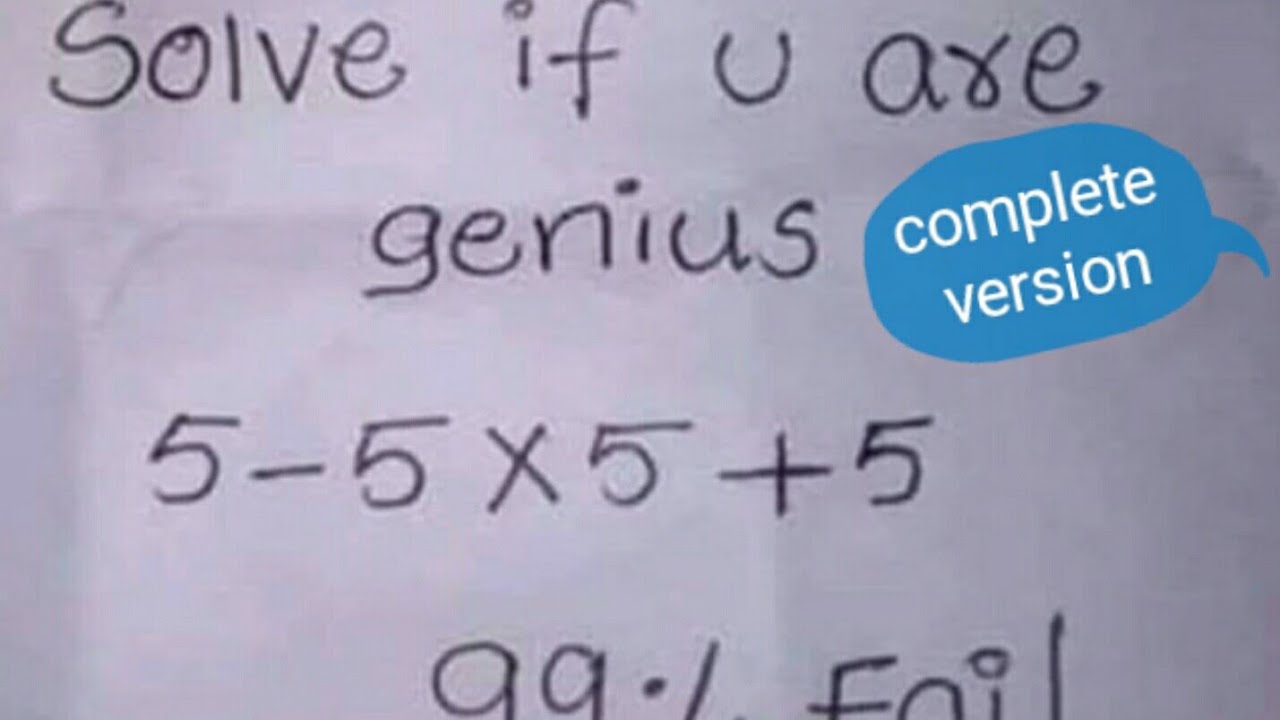 Solve if u are
genius
complete
version
5-5×5+5
99·/. Fail